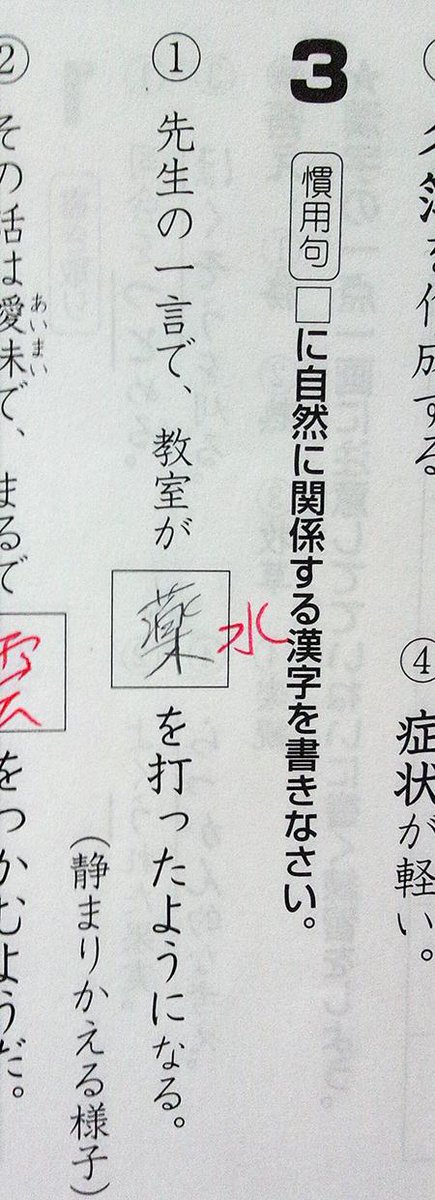 ④ 症状が軽い。
を作成する
3 慣用句 □に自然に関係する漢字を書きなさい。
① 先生の一言で、教室が薬を打ったようになる。
水
（静まりかえる様子）
② その話は愛昧で、まるで
あいまい
雲
をつかむようだ。